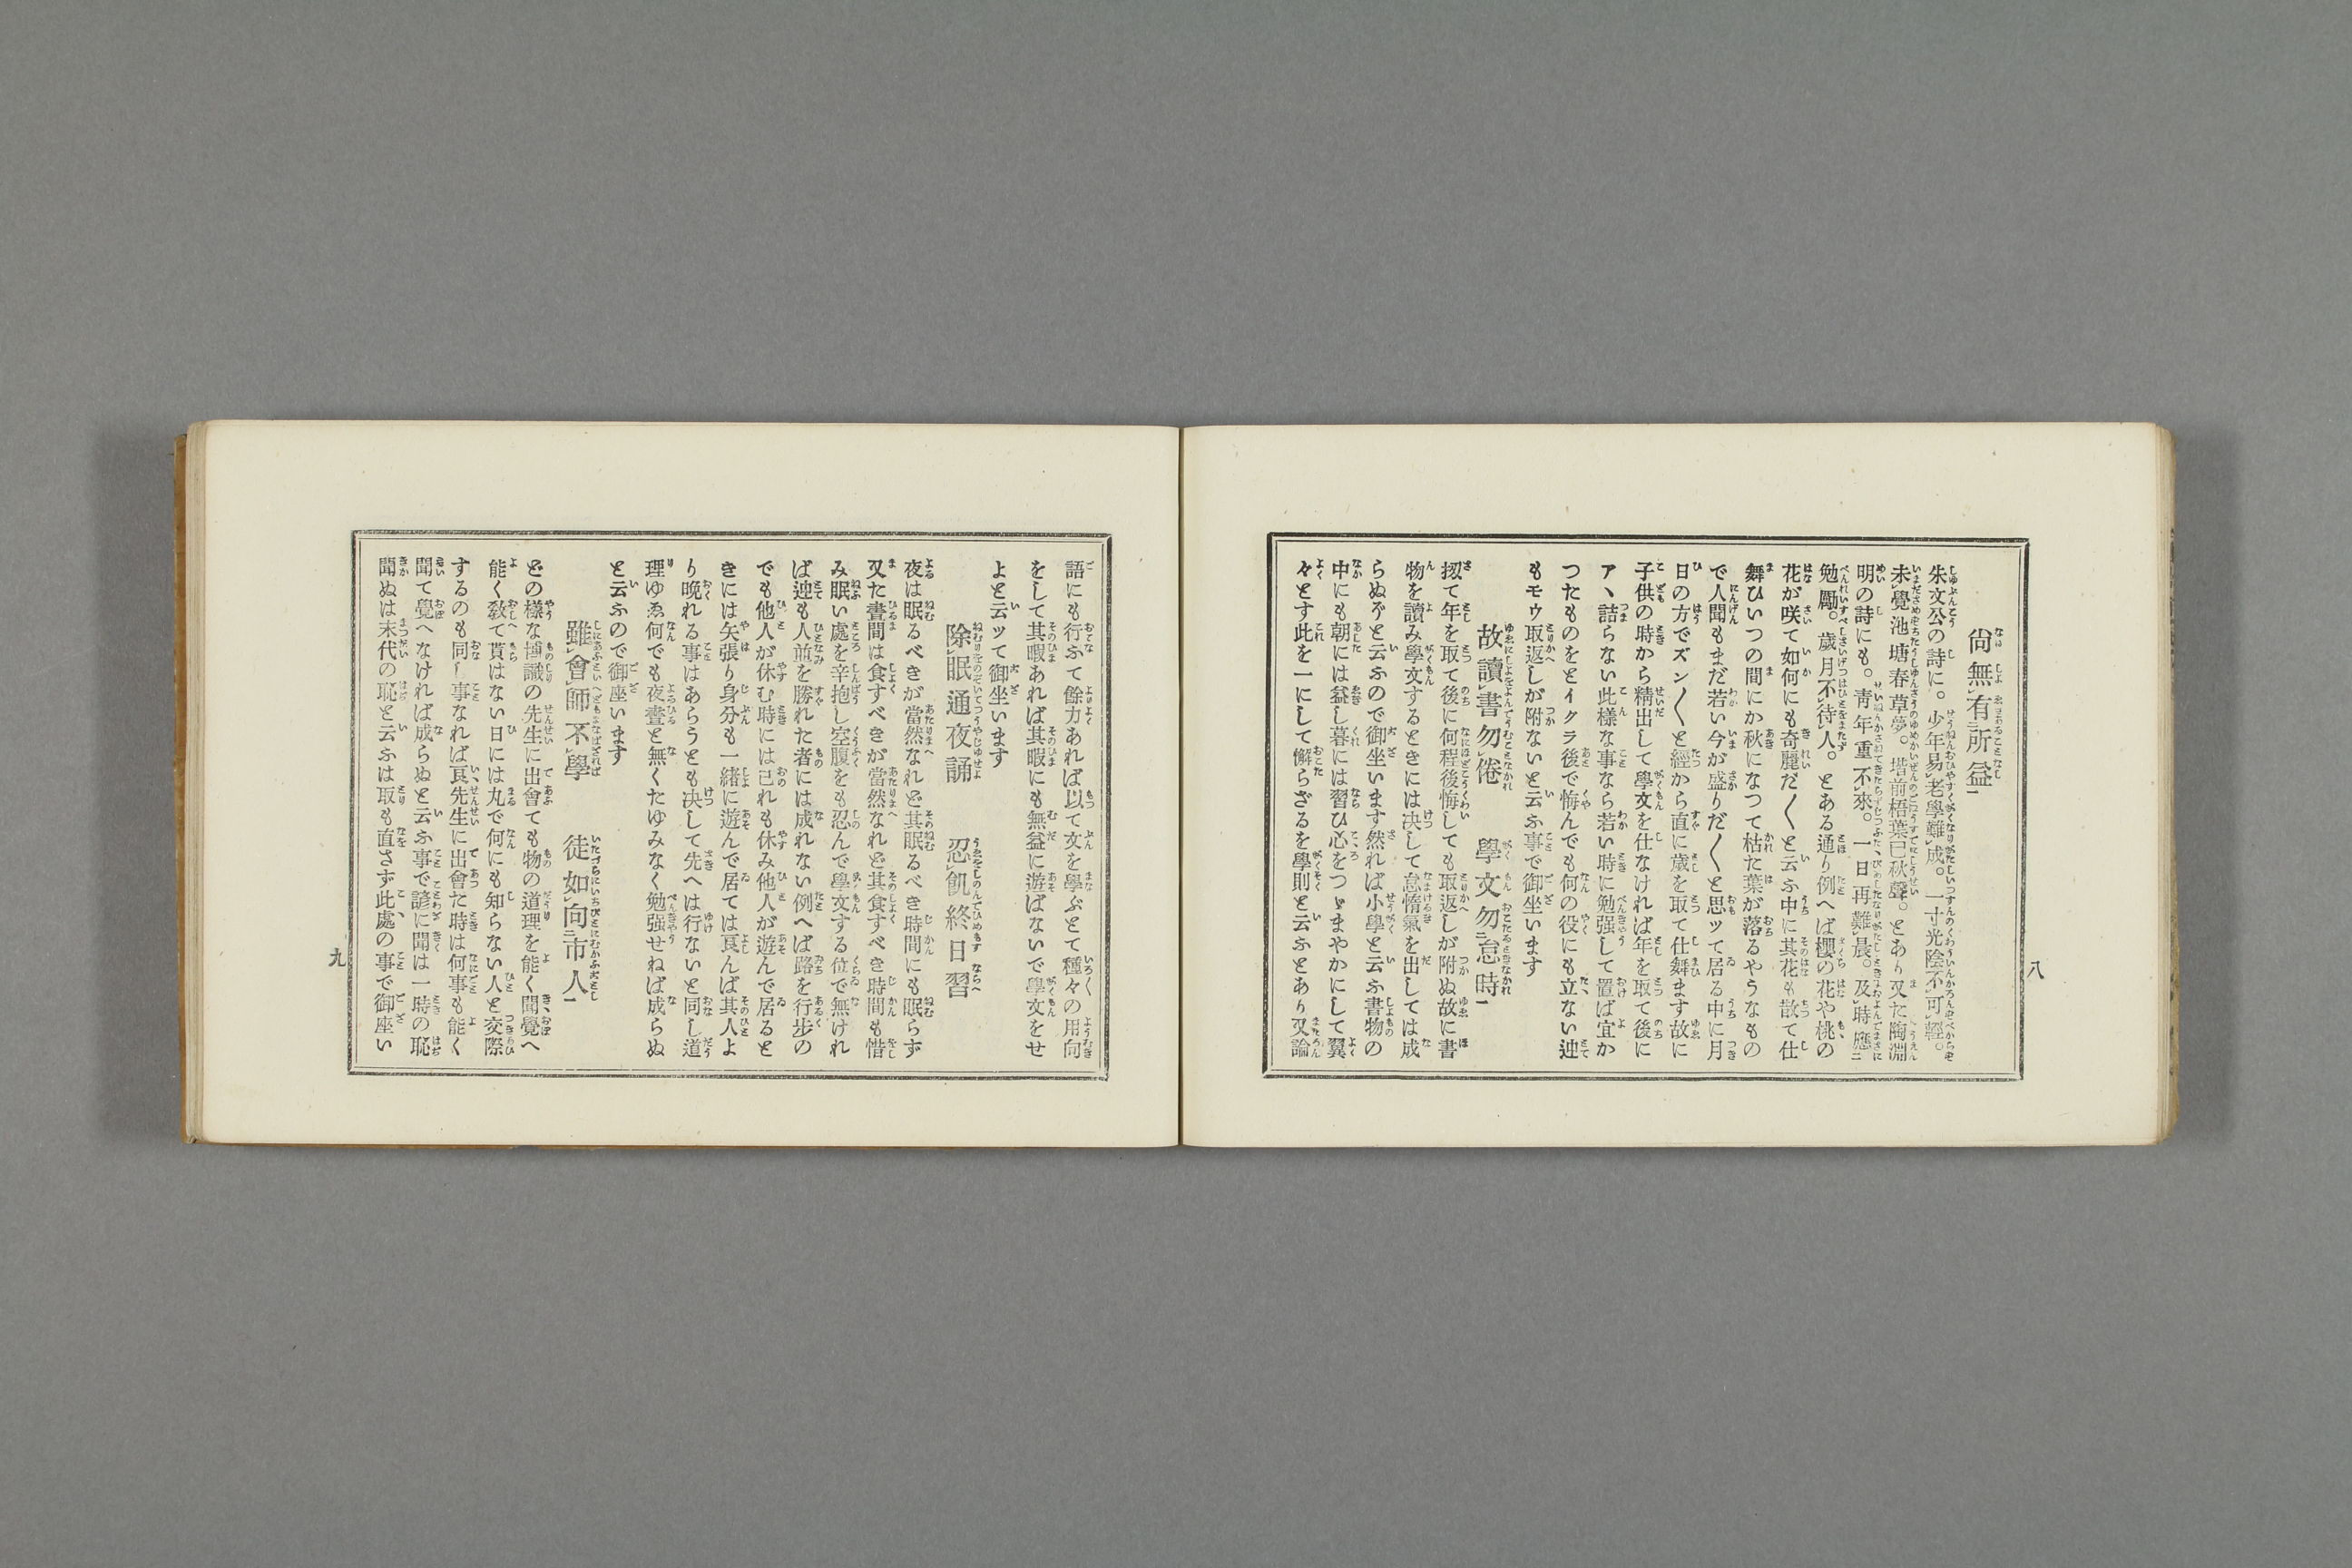 八
尙無有所益
朱文公の詩に。少年易老學難成。一寸光陰不可輕。
未覺池塘春草夢。堦前梧葉已秋聲。とあり又た陶淵
明の詩にも。靑年重不來。一日再難晨。及時應
勉勵。歲月不待人。とある通り例へば櫻の花や桃の
花が咲て如何にも奇麗だ〱と云ふ中に其花も散て仕
舞ひいつの間にか秋になつて枯た葉が落るやうなもの
で人間もまだ若い今が盛りだ〱と思ッて居る中に月
日の方でズン〱と經から直に歲を取て仕舞ます故に
子供の時から精出して學文を仕なければ年を取て後に
アヽ詰らない此樣な事なら若い時に勉强して置ば宜か
つたものをとイクラ後で悔んでも何の役にも立ない迚
もモウ取返しが附ないと云ふ事で御坐います
故讀書勿倦　學文勿怠時
扨て年を取て後に何程後悔しても取返しが附ぬ故に書
物を讀み學文するときには决して怠惰氣を出しては成
らぬゾと云ふので御坐います然れば小學と云ふ書物の
中にも朝には益し暮には習ひ心をつゞまやかにして翼
々とす此を一にして懈らざるを學則と云ふとあり又論
語にも行ふて餘力あれば以て文を學ぶとて種々の用向
をして其暇あれば其暇にも無益に遊ばないで學文をせ
よと云ッて御坐います
除眠通夜誦　忍飢終日習
夜は眠るべきが當然なれど其眠るべき時間にも眠らず
又た晝間は食すべきが當然なれど其食すべき時間も惜
み眠い處を辛抱し空腹をも忍んで學文する位で無けれ
ば迚も人並を勝れた者には成れない例へば路を行步の
でも他人が休む時には己れも休み他人が遊んで居ると
きには矢張り身分も一緖に遊んで居ては良んば其人よ
り晚れる事はあらうとも决して先へは行ないと同し道
理ゆゑ何でも夜晝と無くたゆみなく勉强せねば成らぬ
と云ふので御座います
雖會師不學　徒如向市人
どの樣な博識の先生に出會ても物の道理を能く聞覺へ
能く敎て貰はない日には丸で何にも知らない人と交際
するのも同し事なれば良先生に出會た時は何事も能く
聞て覺へなければ成らぬと云ふ事で諺に聞は一時の恥
聞ぬは末代の恥と云ふは取も直さず此處の事で御座い
九